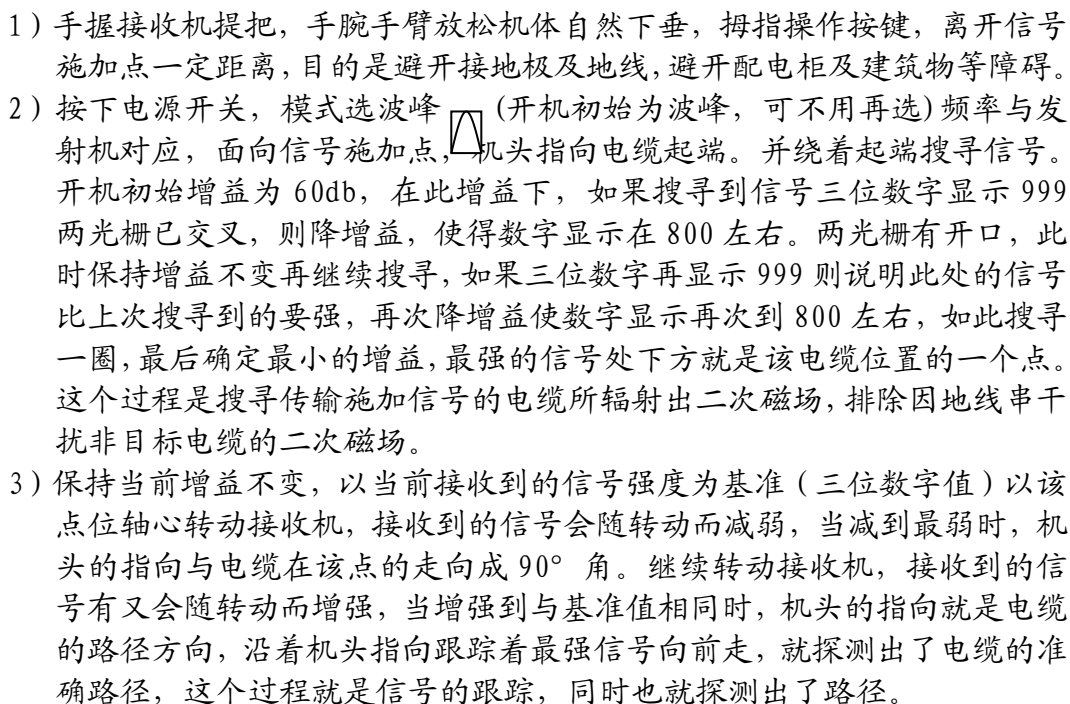 1）手握接收机提把，手腕手臂放松机体自然下垂，拇指操作按键，离开信号
施加点一定距离，目的是避开接地极及地线，避开配电柜及建筑物等障碍。
2）按下电源开关，模式选波峰 (开机初始为波峰，可不用再选)频率与发
射机对应，面向信号施加点，机头指向电缆起端。并绕着起端搜寻信号。
开机初始增益为 60db，在此增益下，如果搜寻到信号三位数字显示 999
两光栅已交叉，则降增益，使得数字显示在 800 左右。两光栅有开口，此
时保持增益不变再继续搜寻，如果三位数字再显示 999 则说明此处的信号
比上次搜寻到的要强，再次降增益使数字显示再次到 800 左右，如此搜寻
一圈，最后确定最小的增益，最强的信号处下方就是该电缆位置的一个点。
这个过程是搜寻传输施加信号的电缆所辐射出二次磁场，排除因地线串干
扰非目标电缆的二次磁场。
3）保持当前增益不变，以当前接收到的信号强度为基准（三位数字值）以该
点位轴心转动接收机，接收到的信号会随转动而减弱，当减到最弱时，机
头的指向与电缆在该点的走向成 90° 角。继续转动接收机，接收到的信
号有又会随转动而增强，当增强到与基准值相同时，机头的指向就是电缆
的路径方向，沿着机头指向跟踪着最强信号向前走，就探测出了电缆的准
确路径，这个过程就是信号的跟踪，同时也就探测出了路径。